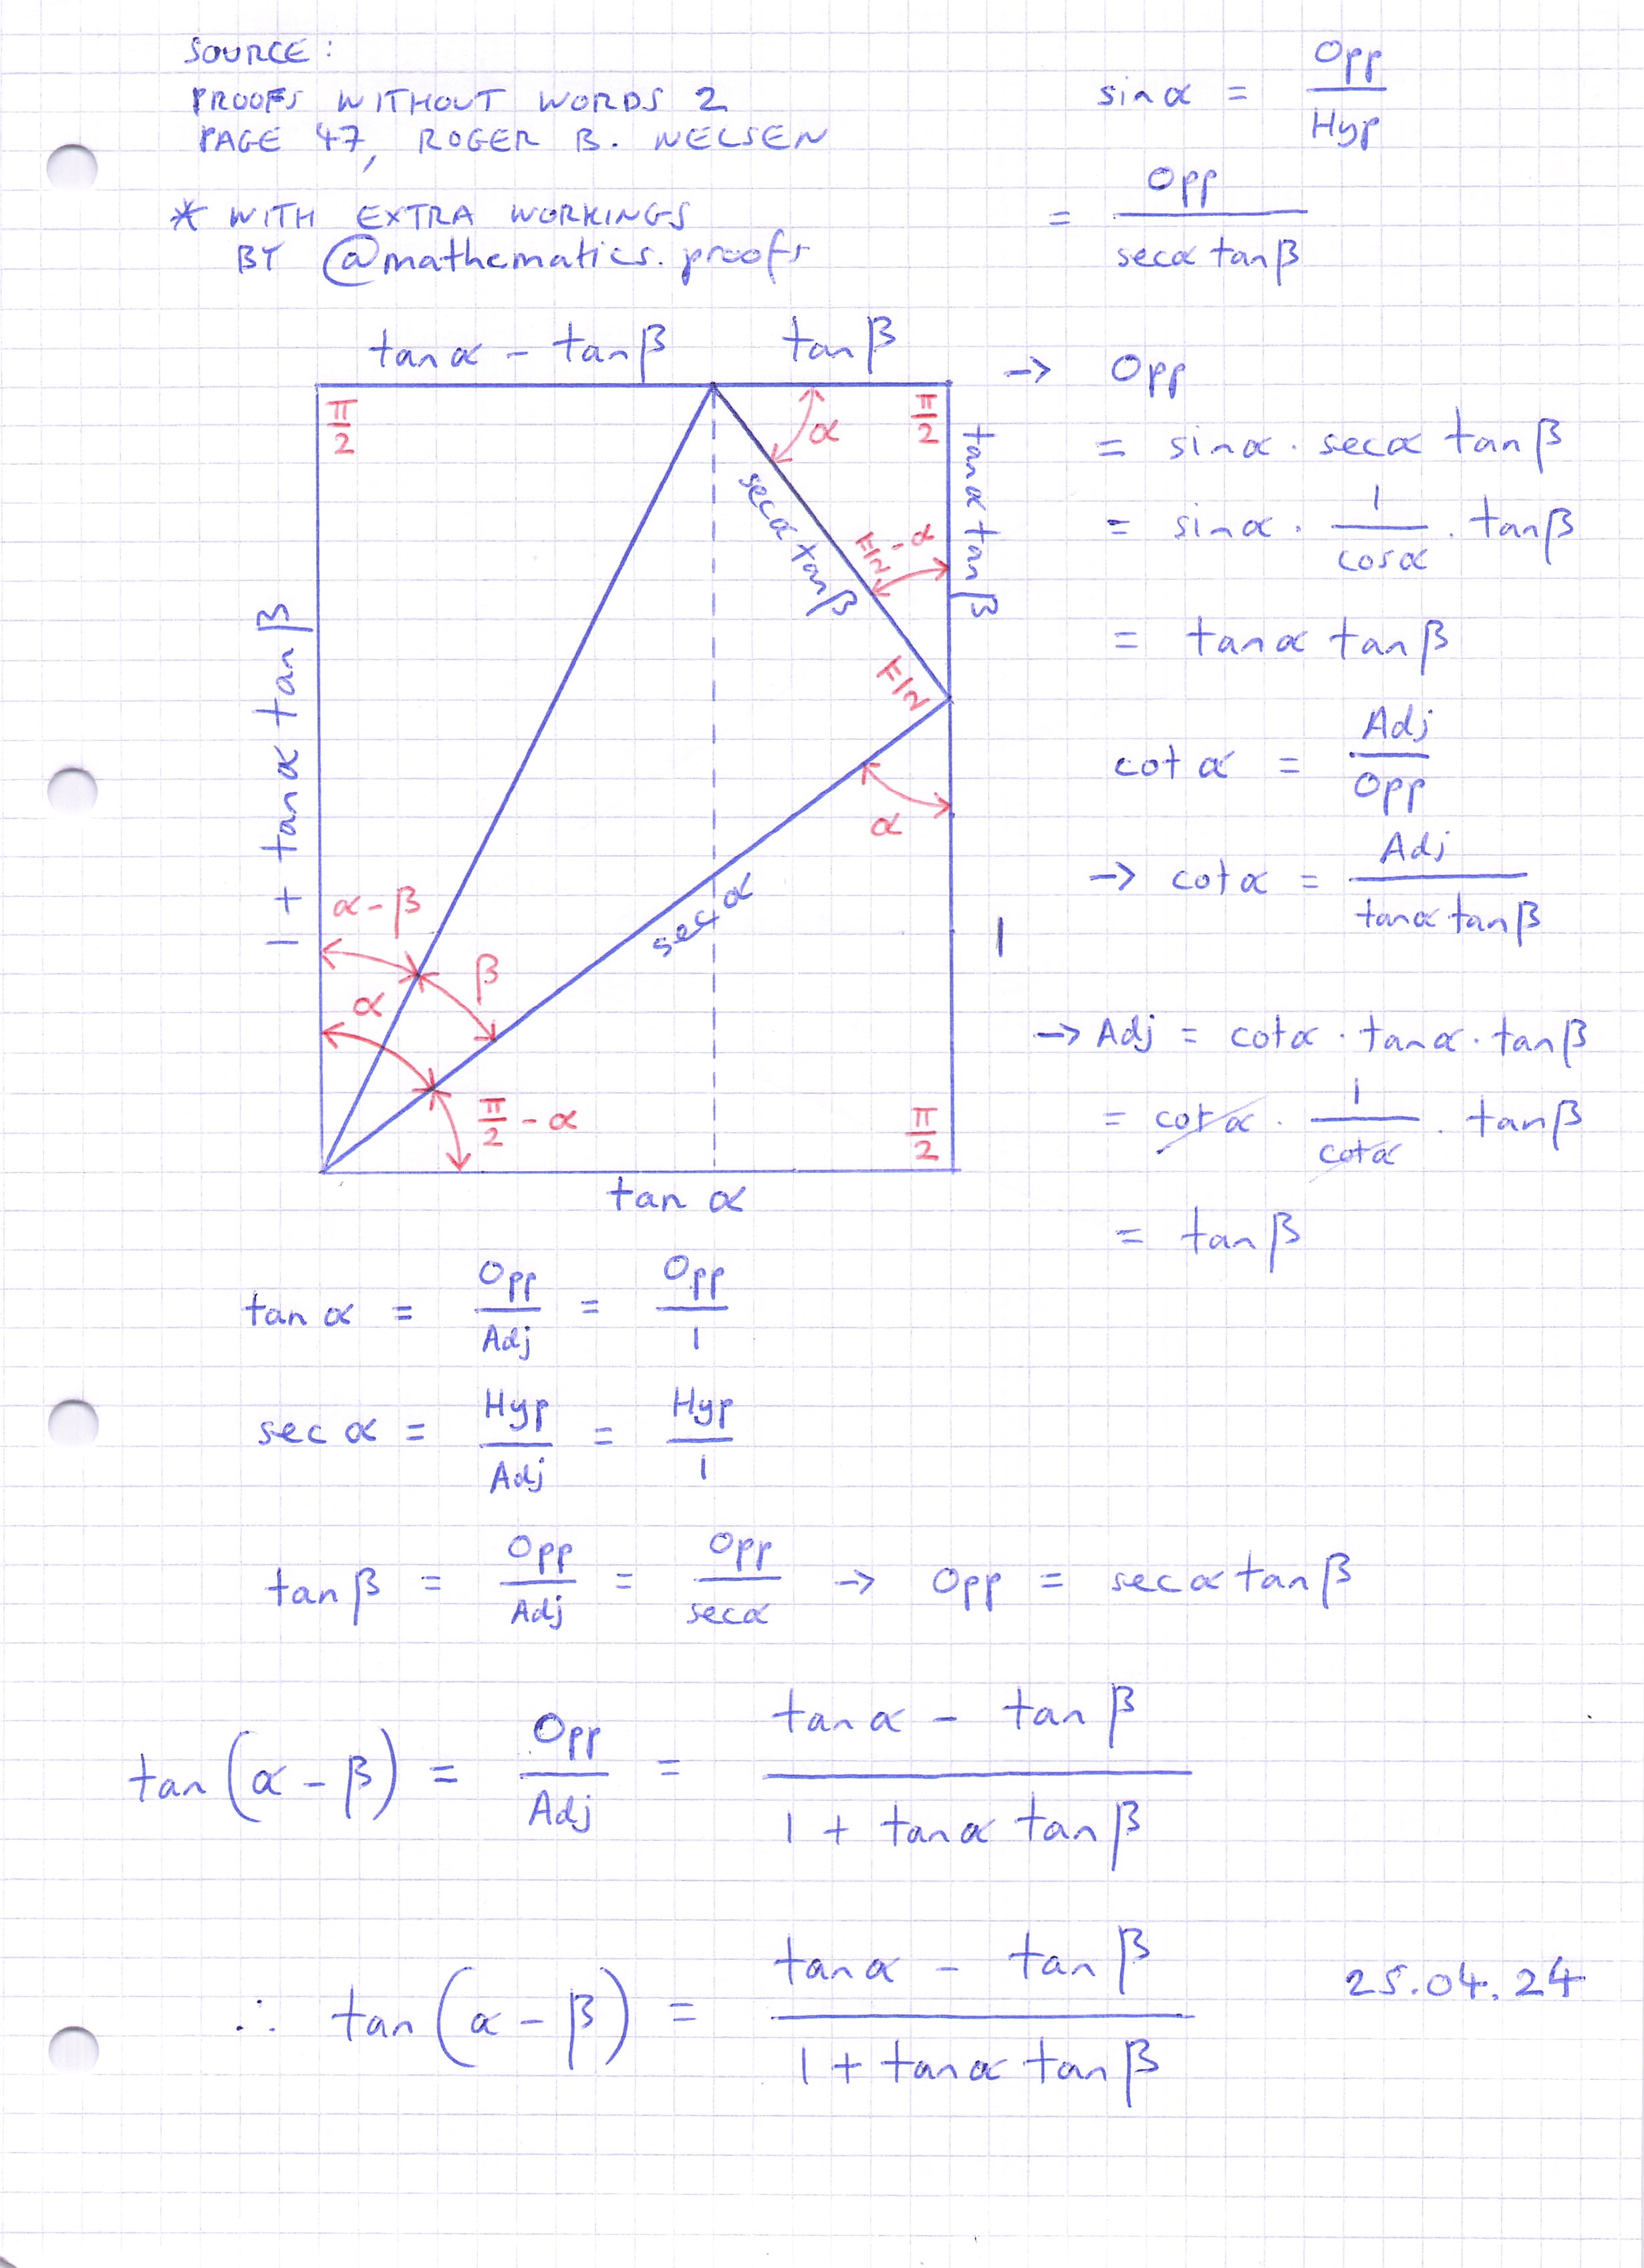 SOURCE:
PROOFS WITHOUT WORDS 2
PAGE 47, ROGER B. NELSEN
* WITH EXTRA WORKINGS
BY @mathematics.proofs
sin α = Opp/Hyp
= Opp/(sec α tan β)
→ Opp
= sin α · sec α tan β
= sin α · 1/cos α · tan β
= tan α tan β
cot α = Adj/Opp
→ cot α = Adj/(tan α tan β)
→ Adj = cot α · tan α · tan β
= cot α · 1/cot α · tan β
= tan β
tan α − tan β
tan β
π/2
α
π/2
tan α tan β
sec α tan β
π/2 − α
π/2
1 + tan α tan β
α
α − β
β
sec α
1
α
π/2 − α
π/2
tan α
tan α = Opp/Adj = Opp/1
sec α = Hyp/Adj = Hyp/1
tan β = Opp/Adj = Opp/sec α → Opp = sec α tan β
tan(α − β) = Opp/Adj = (tan α − tan β)/(1 + tan α tan β)
∴ tan(α − β) = (tan α − tan β)/(1 + tan α tan β)
25.04.24